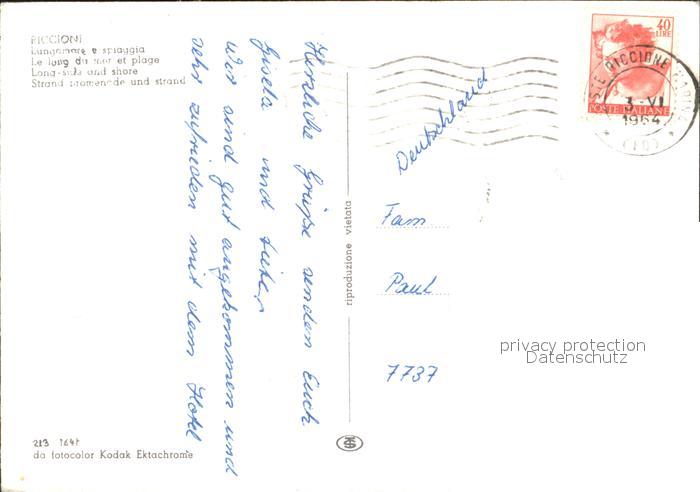 RICCIONE
Lungomare e spiaggia
Le long du mer et plage
Long-side und shore
Strand promenade und strand
Herzliche Grüße senden Euch
Gisela und
Wir sind gut angekommen und
sehr zufrieden mit dem Hotel
213 1641
da fotocolor Kodak Ektachrome
riproduzione vietata
40
LIRE
POSTE ITALIANE
RICCIONE
3-VI
1964
(FO)
Deutschland
Fam
Paul
7737
privacy protection
Datenschutz